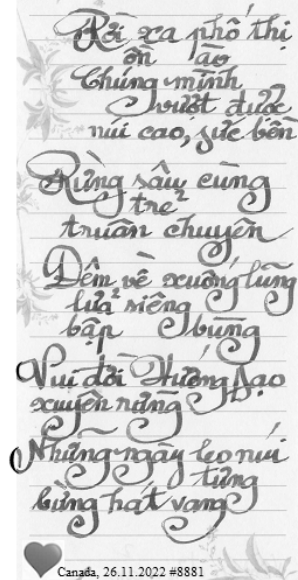 Rời xa phố thị
ồn ào
Chúng mình
vượt được
núi cao, sức bền
Rừng sâu cùng
trẻ
truân chuyên
Đêm về xuống lũng
lửa riêng
bập bùng
Vui đời Hướng Đạo
xuyên rừng
Những ngày leo núi
từng
bừng hát vang
Canada, 26.11.2022 #8881